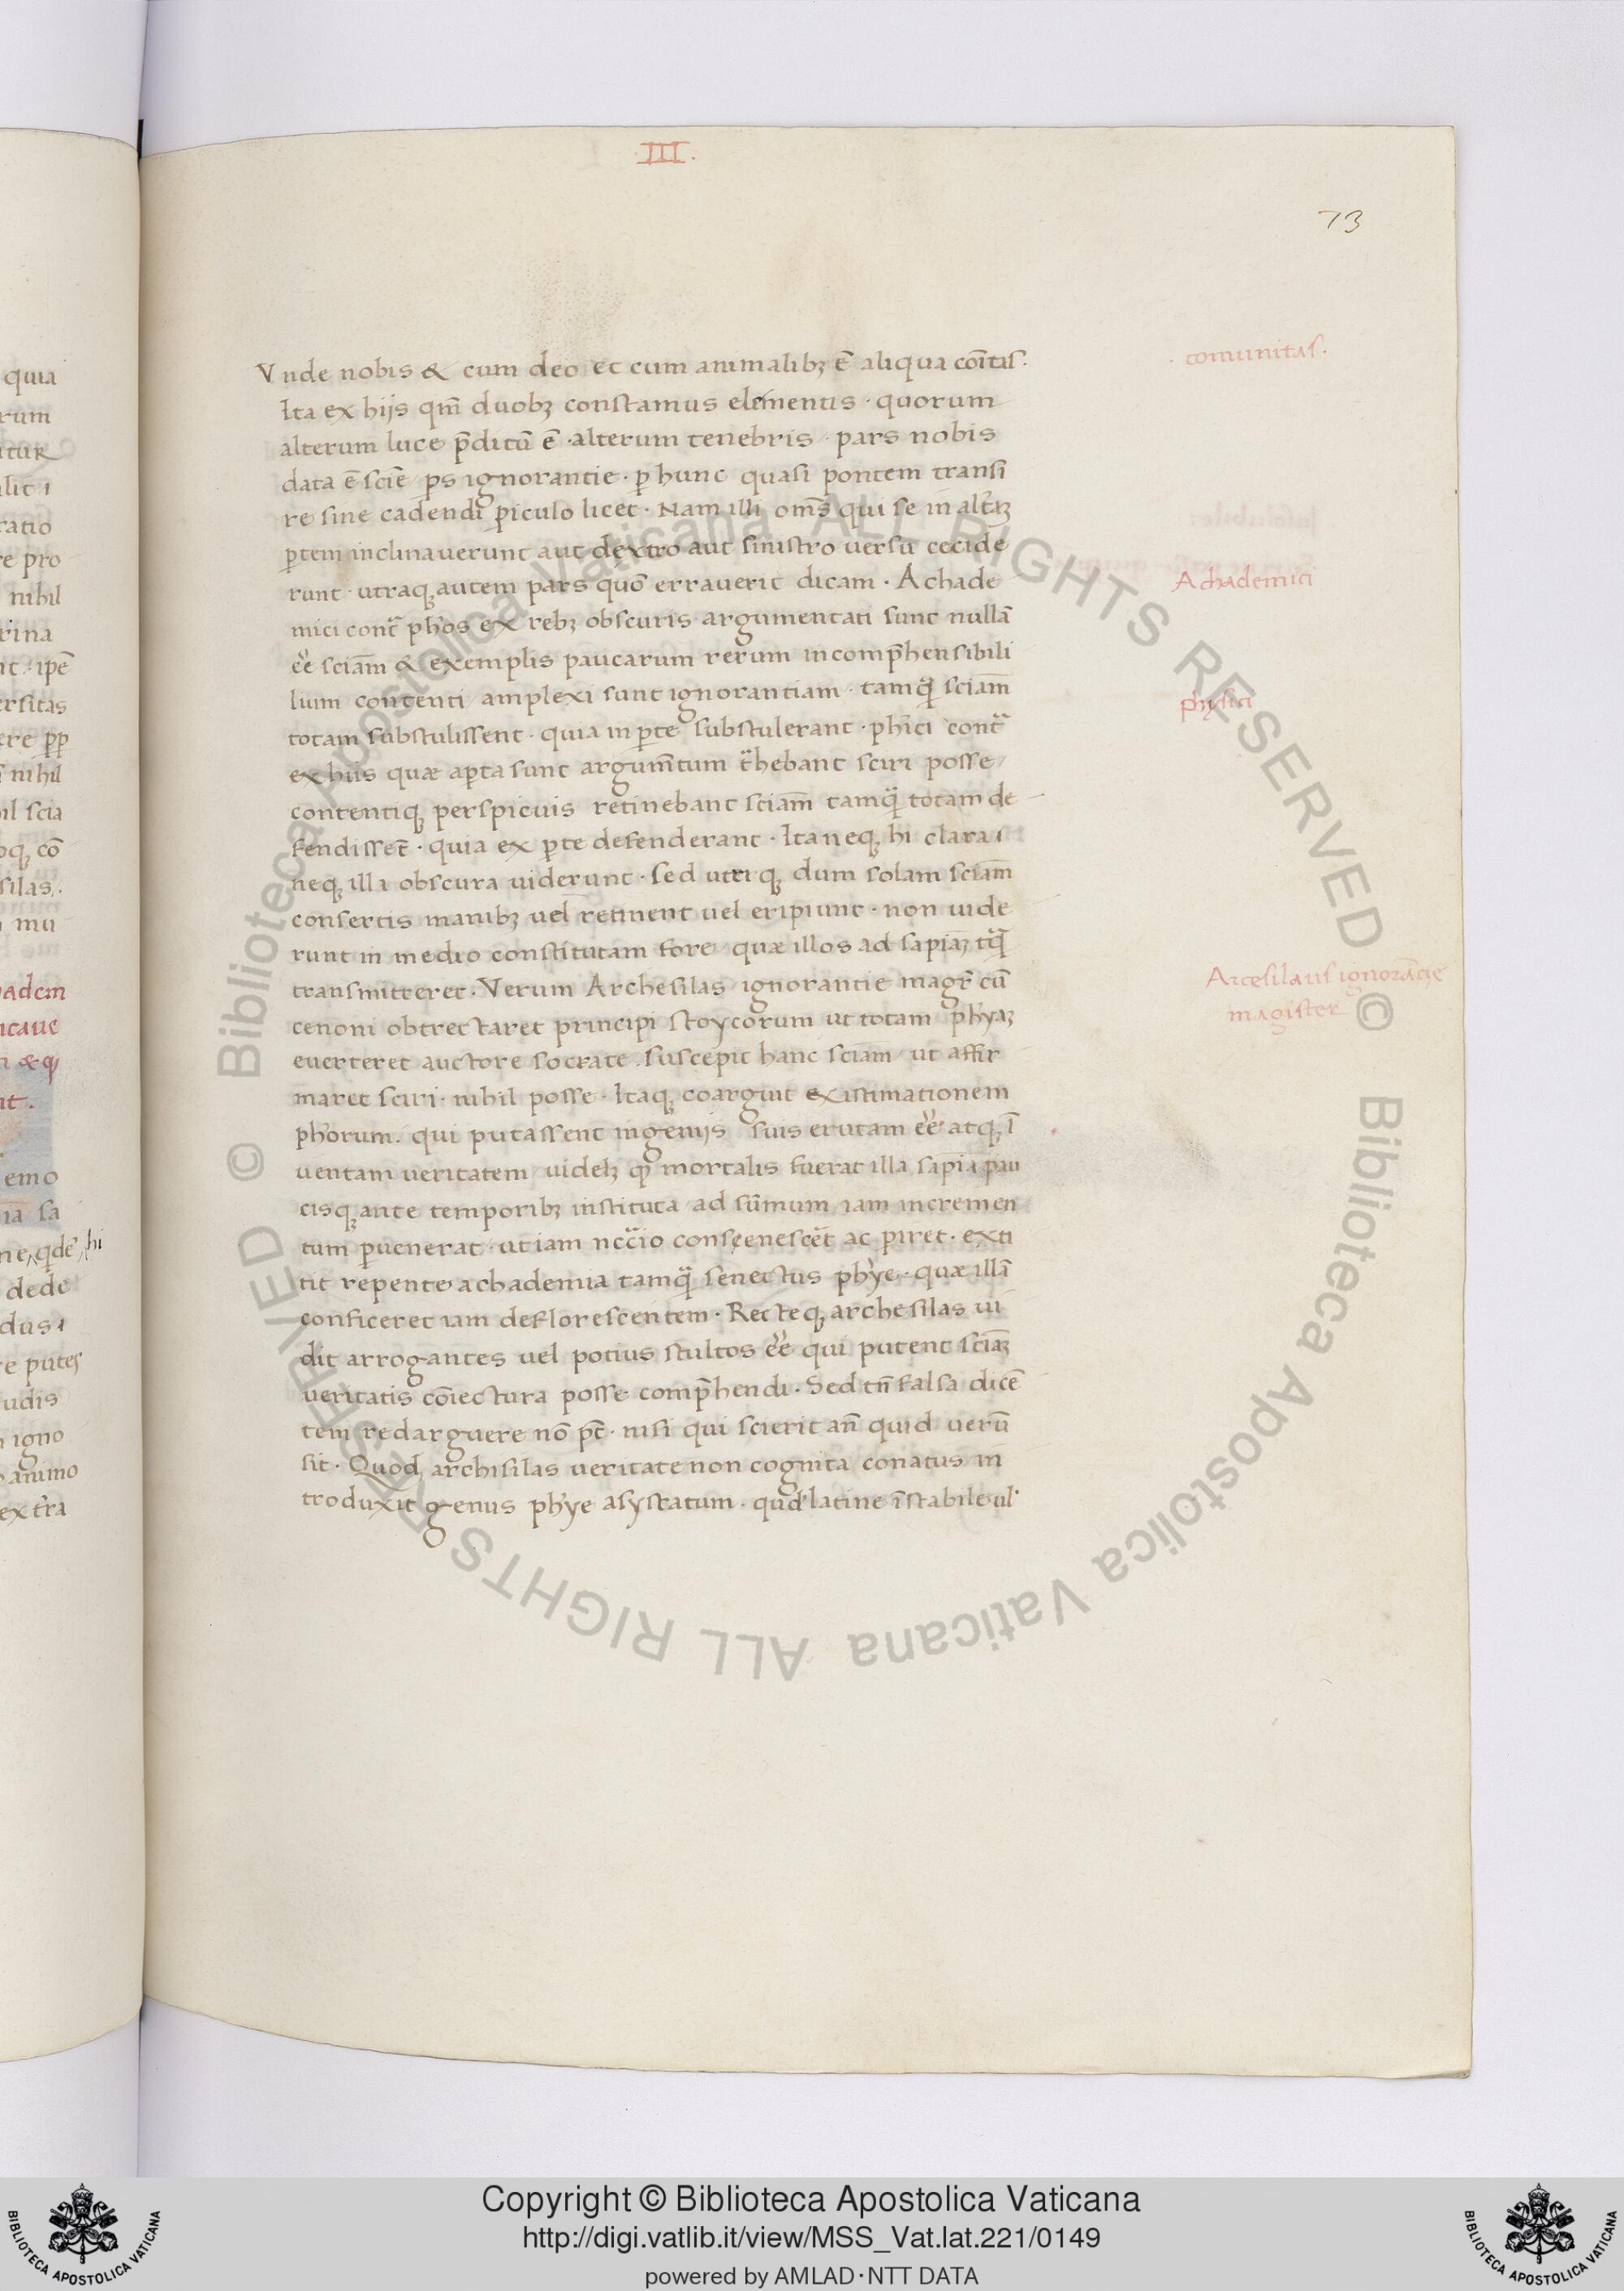 .III.
73
Vnde nobis & cum deo et cum animalibꝫ ē aliqua cōītas.
Ita ex hijs qm̄ duobꝫ constamus elementis · quorum
alterum luce p̄ditū ē · alterum tenebris · pars nobis
data ē sciē ꝑs ignorantie · ꝑ hunc quasi pontem transi
re sine cadendi ꝑiculo licet · Nam illi om̄s qui se in
ꝑtem inclinaverunt aut dextro aut sinistro uersu cecide
runt · utraqꝫ autem pars quō erraverit dicam · Achade
mici cont̄ ph̄os ex rebꝫ obscuris argumentati sunt nullā
ēē sciam̄ & exemplis paucarum rerum incomp̄hensibili
lium contenti amplexi sunt ignorantiam · tamq̄ sciam̄
totam substulissent · quia in ꝑte substulerant · phīci cont̄
ex hiis quæ aꝑta sunt argumt̄um t̄hebant sciri posse
contentiqꝫ perspicuis retinebant sciam̄ tamq̄ totam de
fendisset̄ · quia ex ꝑte defenderant · Ita neqꝫ hi clara
neqꝫ illi obscura uiderunt · sed utriqꝫ dum solam sciam̄
consertis manibꝫ uel retinent uel eripiunt · non uide
runt in medio constitutam fore quæ illos ad sapiaꝫ̄ tq̄
transmitteret · Verum Archesilas ignorantie magr̄ cū
cenoni obtrectaret principi stoycorum ut totam ph̄yaꝫ
euerteret auctore socrate · suscepit hanc sciam̄ ut affir
maret sciri · nihil posse · Itaqꝫ coarguit existimationem
ph̄orum · qui putassent ingenijs suis erutam ēē atqꝫ ī
uentam ueritatem uidelꝫ qꝫ mortalis fuerat illa sapīa pau
cisqꝫ ante temporibꝫ instituta ad sūmum iam incremen
tum ꝑuenerat · ut iam ncc̄io consenescet̄ ac ꝑiret · exti
tit repente achademia tamq̄ senectus ph̄ye · quæ illā
conficeret iam deflorescentem · Recteqꝫ archesilas ui
dit arrogantes uel potius stultos ēē qui putent sciaꝫ̄
ueritatis cōiectura posse comp̄hendi · Sed tn̄ falsa dicē
tem redarguere nō pt̄ · nisi qui scierit an̄ quid uerū
sit · Quod archisilas ueritate non cognita conatus in
troduxit genus ph̄ye asystatum · quod latine īstabile ul'
· comunitas.
Achademici
physici
Arcesilaus ignorāt̄ie
magister
Copyright © Biblioteca Apostolica Vaticana
http://digi.vatlib.it/view/MSS_Vat.lat.221/0149
powered by AMLAD·NTT DATA
BIBLIOTECA APOSTOLICA VATICANA
BIBLIOTECA APOSTOLICA VATICANA
© Biblioteca Apostolica Vaticana ALL RIGHTS RESERVED
© Biblioteca Apostolica Vaticana ALL RIGHTS RESERVED